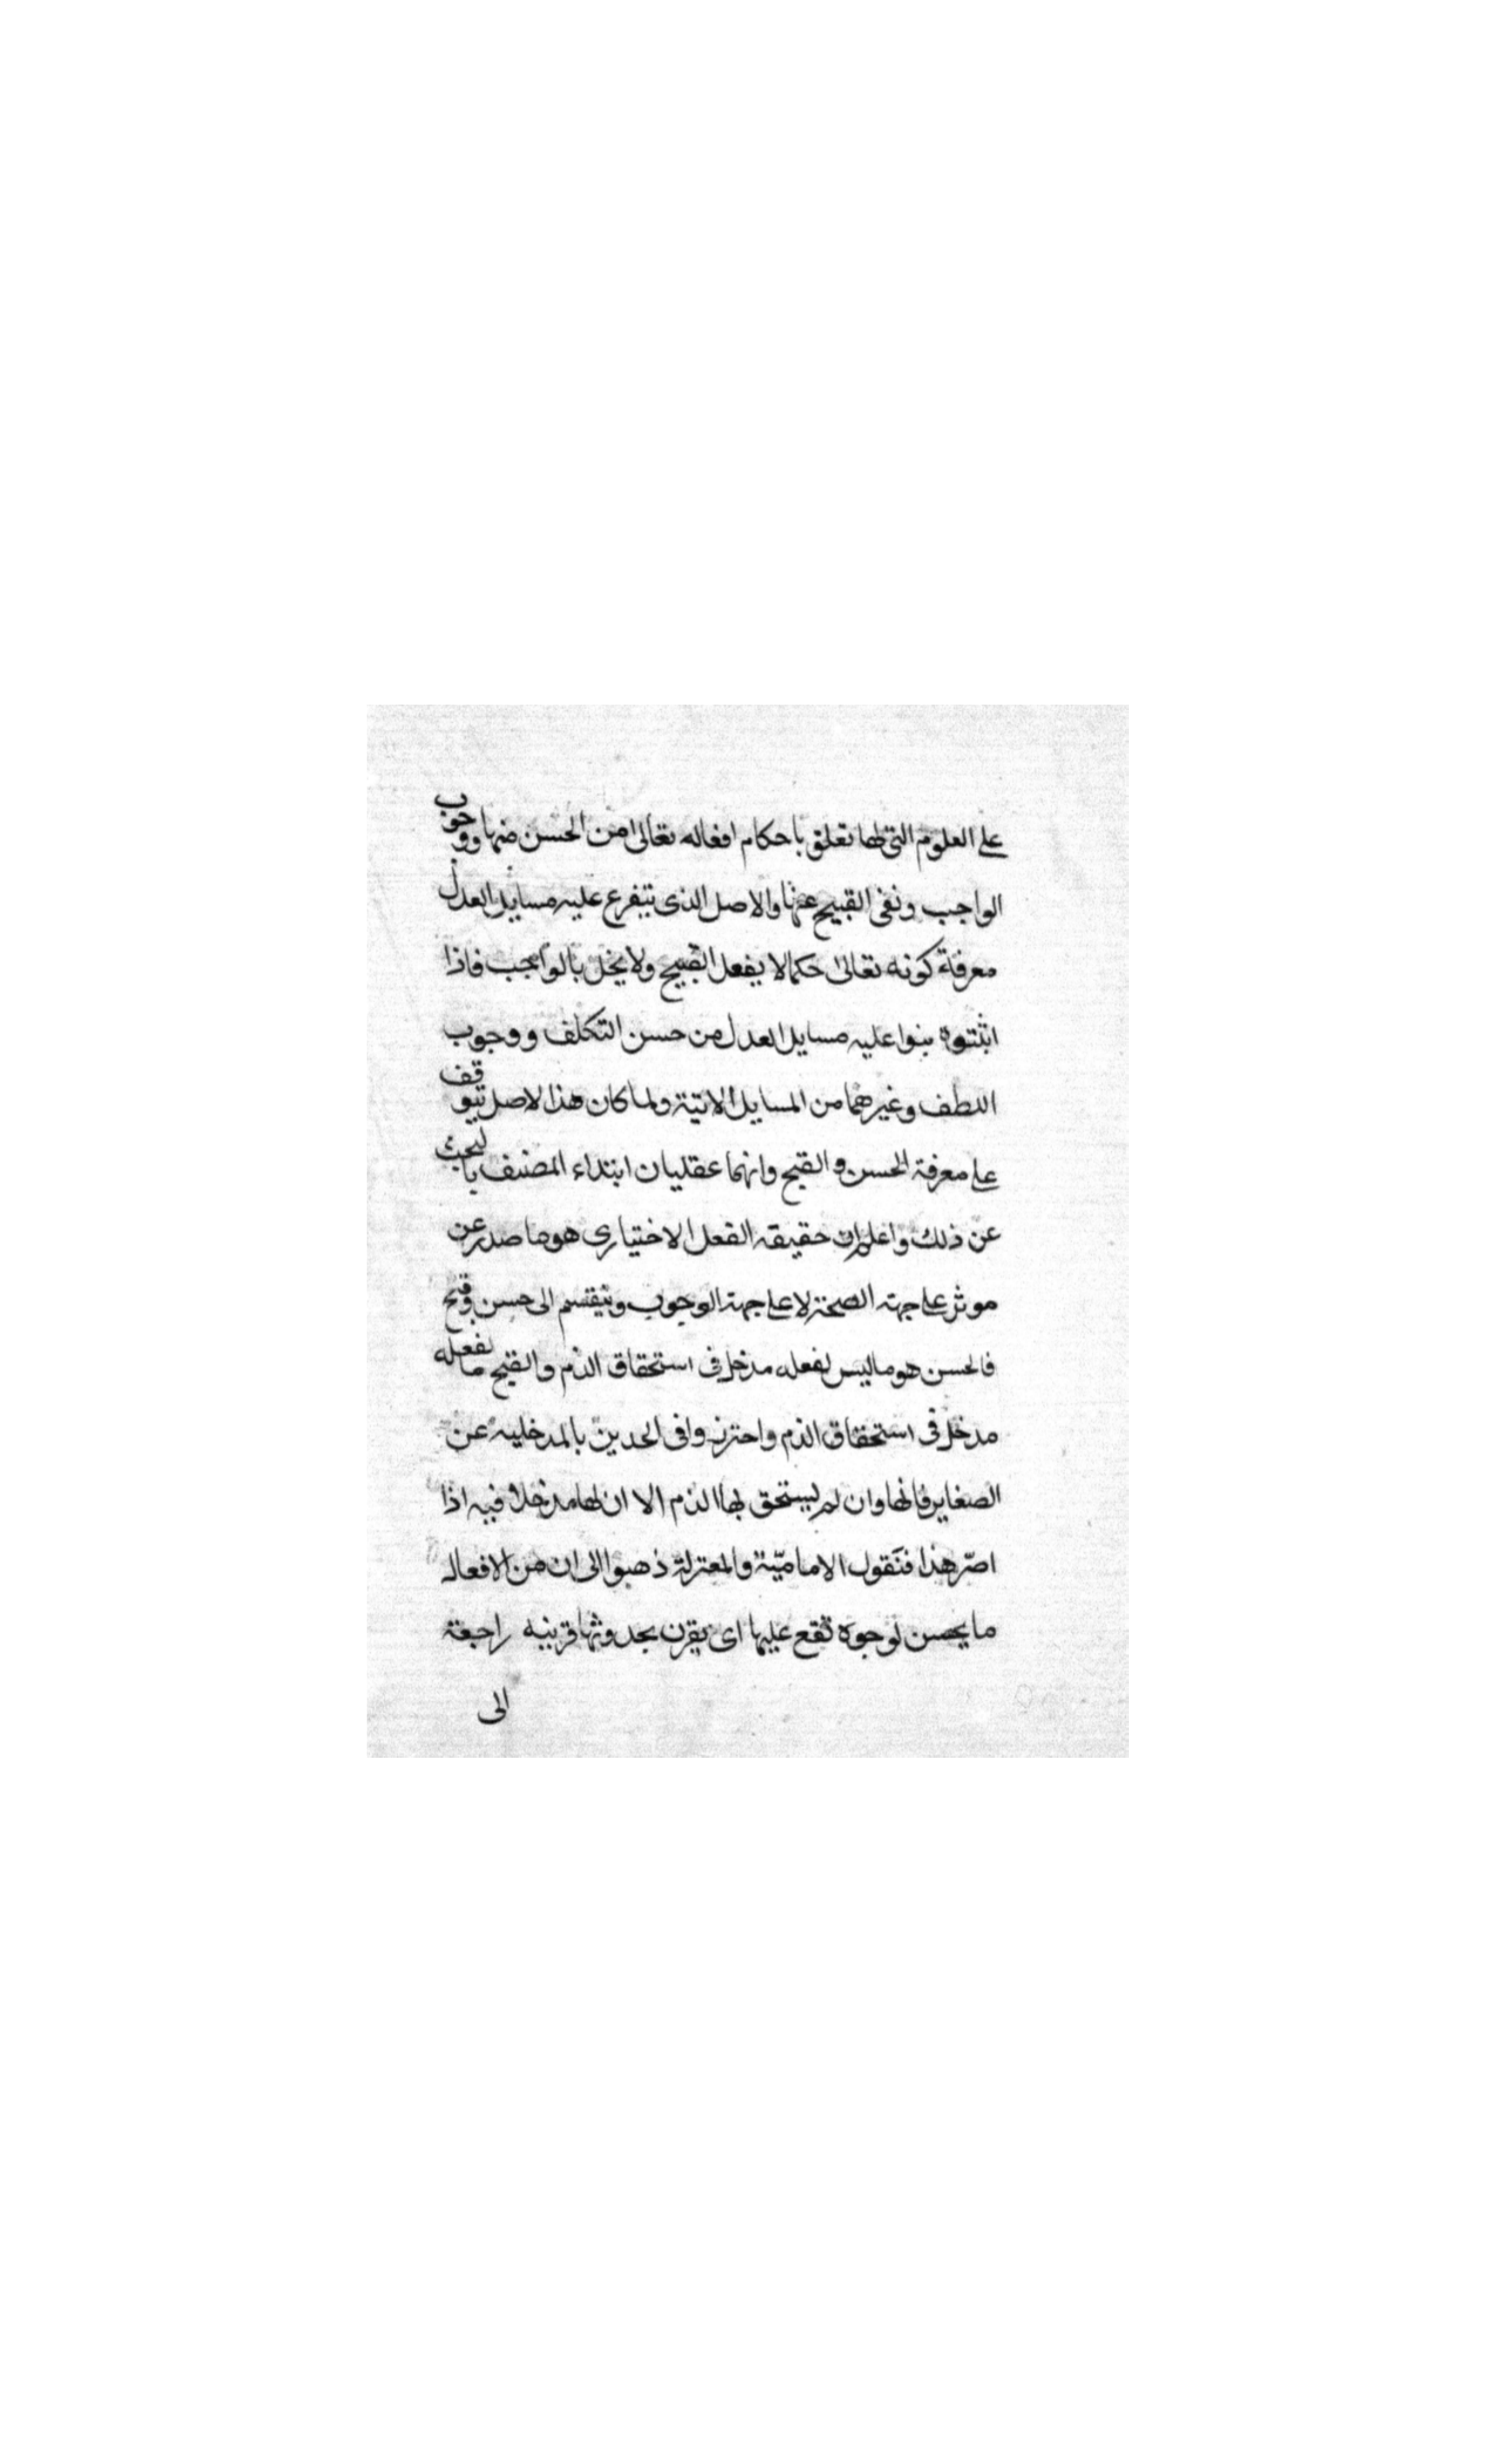 على العلوم التى لها تعلق باحكام افعاله تعالى من الحسن منها ووجوب
الواجب ونفى القبيح عنها والاصل الذى يتفرع عليه مسايل العدل
معرفة كونه تعالى حكما لا يفعل القبيح ولا يخل بالواجب فاذا
اثبتوه بنوا عليه مسايل العدل من حسن التكلف ووجوب
اللطف وغيرهما من المسايل الاتية ولما كان هذا لاصل يتوقف
على معرفة الحسن والقبح وانهما عقليان ابتداء المصنف بالبحث
عن ذلك واعلم ان حقيقه الفعل الاختيارى هو ما صدر عن
موثر على جهة الصحة لا على جهة الوجوب وينقسم الى حسن وقبح
فالحسن هو ما ليس لفعله مدخل فى استحقاق الذم والقبيح ما لفعله
مدخل فى استحقاق الذم واحترزوا فى الحدين بالمدخليه عن
الصغاير فانها وان لم يستحق بها الذم الا ان لها مدخلا فيه اذا
اصّر هذا فنقول الاماميّة والمعتزلة ذهبوا الى ان من الافعال
ما يحسن لوجوه تقع عليها اى يقرن بحدوثها قرينه راجعة
الى